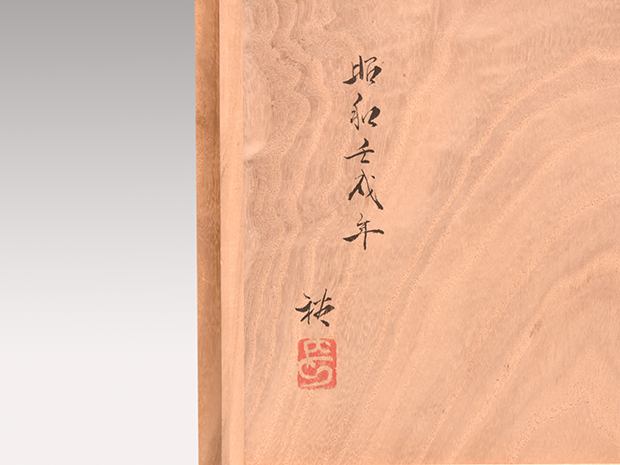 昭和壬戌年